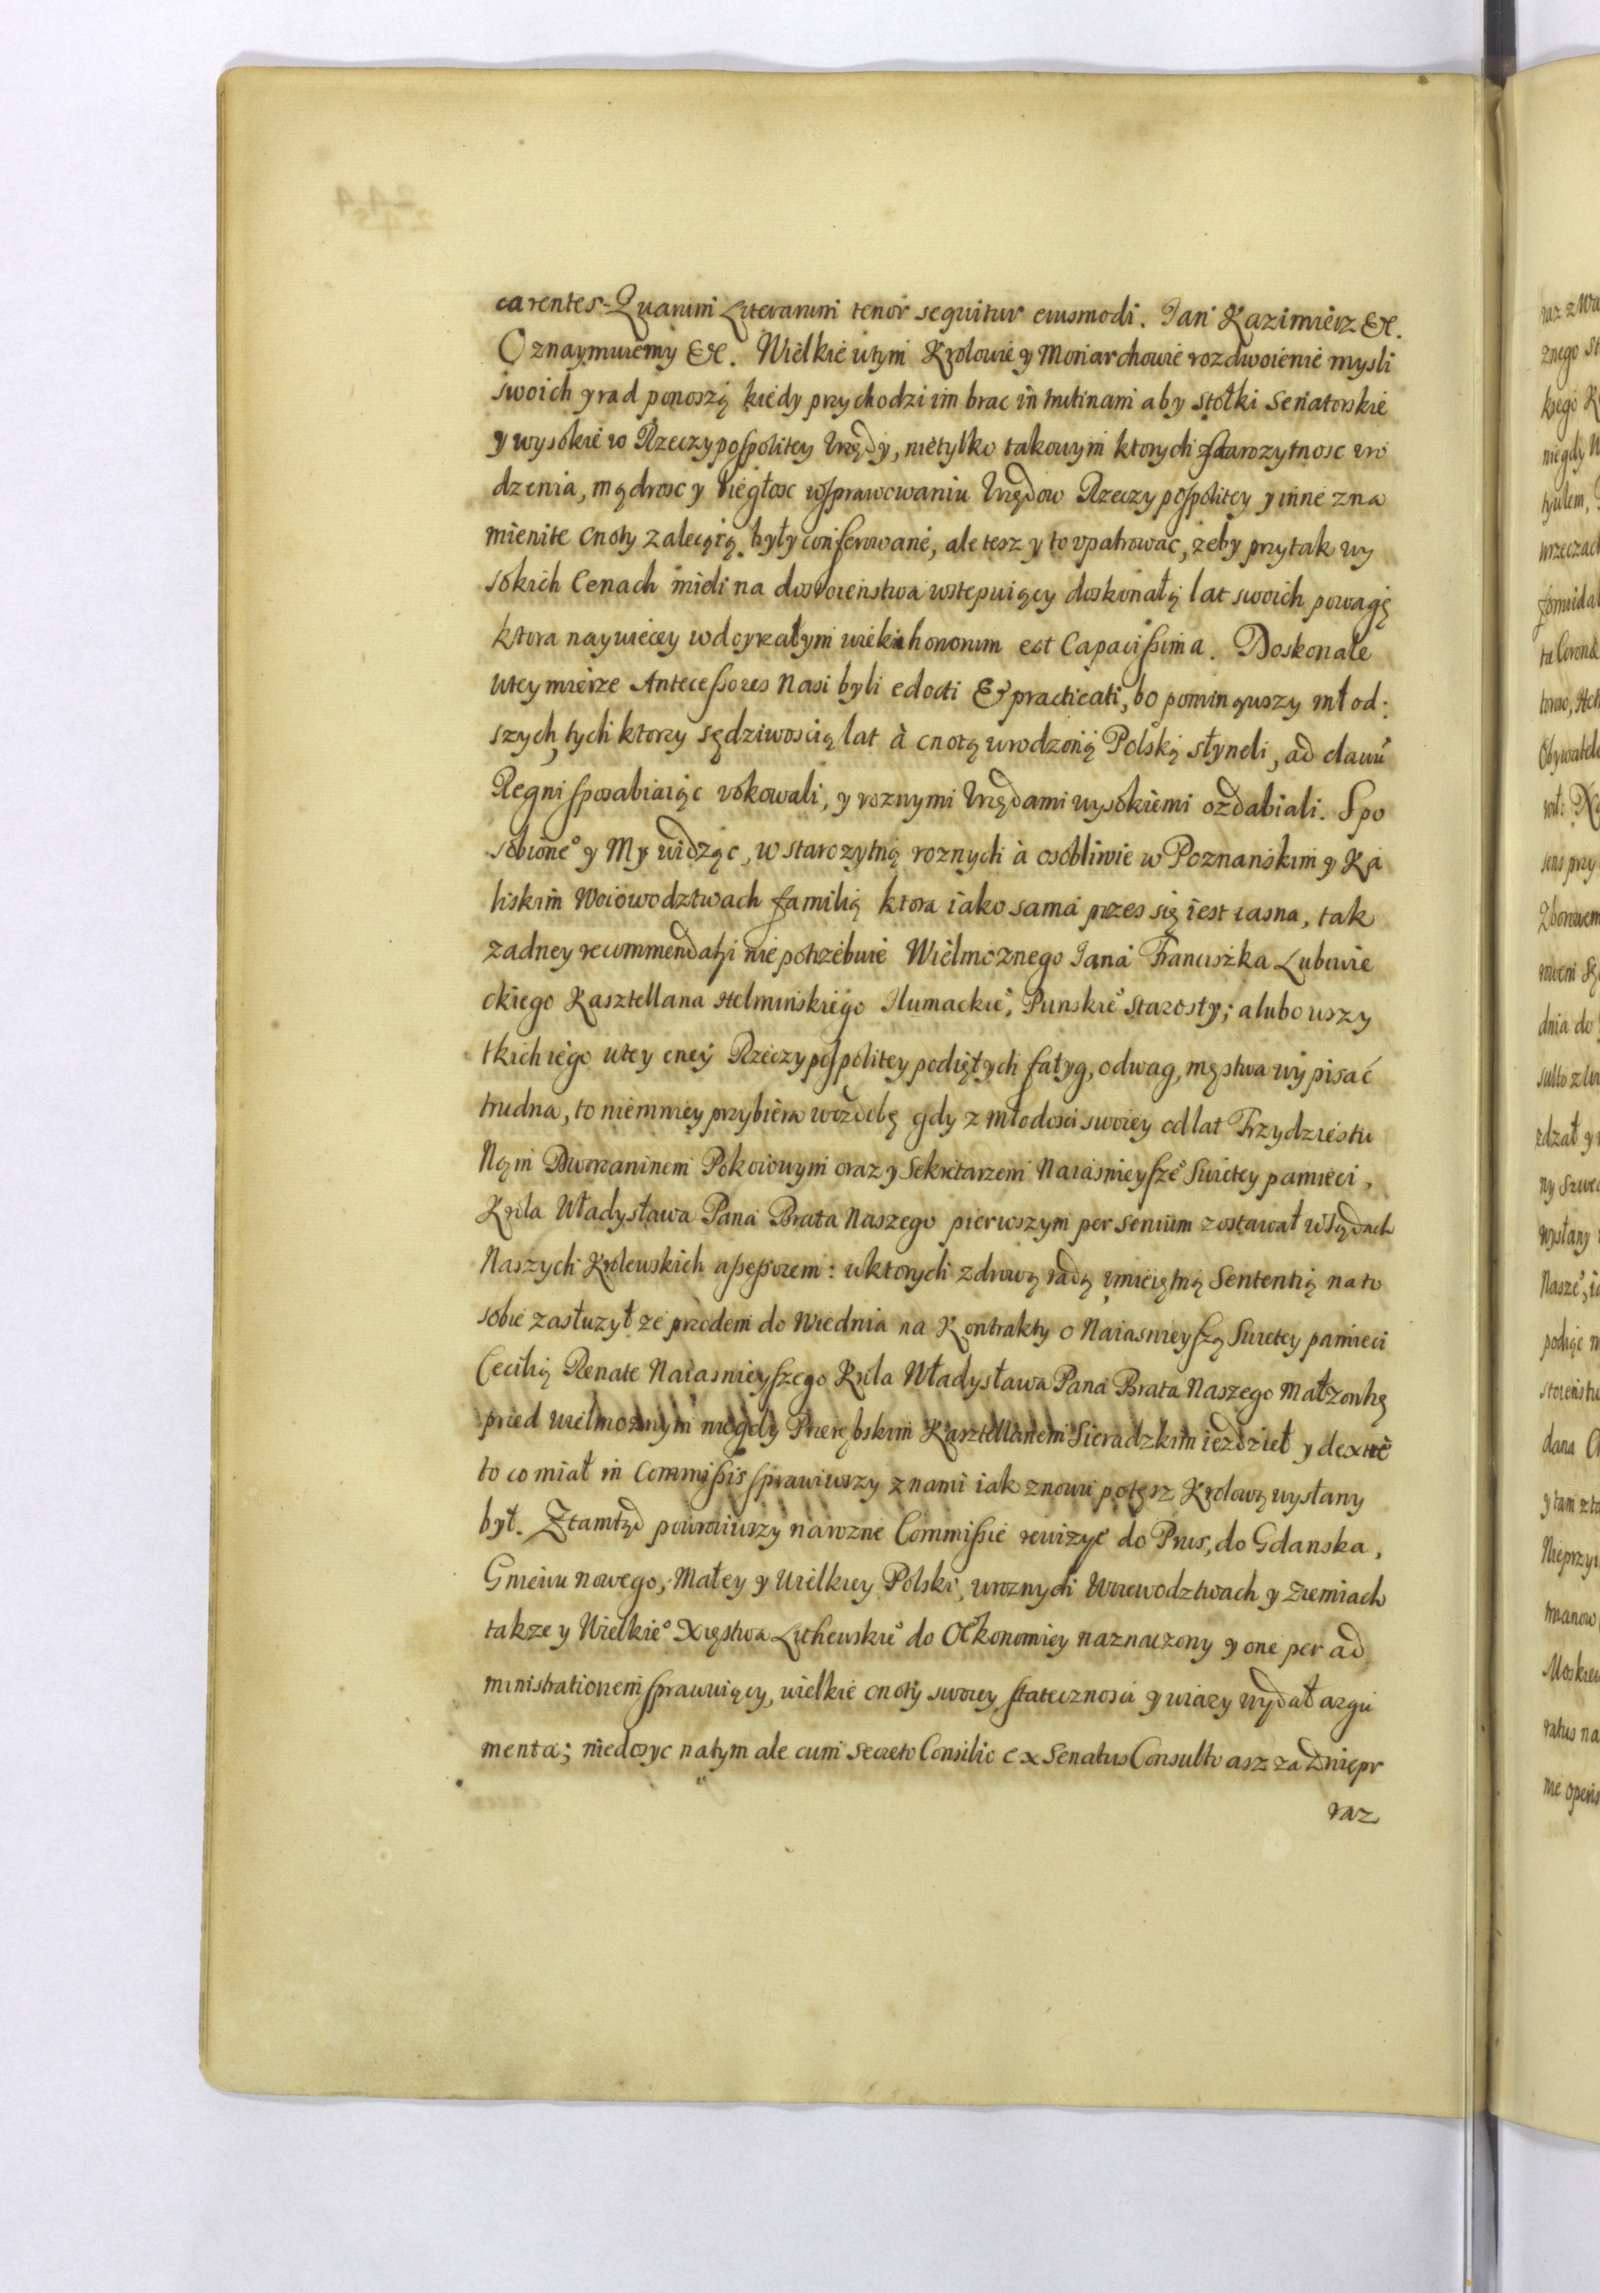 carentes. Quarum Literarum tenor sequitur eiusmodi. Jan Kazimierz &c.
Oznaymuiemy &c. Wielkie wtym Krolowie y Monarchowie rozdwoienie mysli
swoich y rad ponoszą kiedy przychodzi im brac in trutinam aby stołki Senatorskie
y wysokie w Rzeczypospolitey Urzędy, nietylko takowym ktorych starozytnosc uro
dzenia, mądrosc y biegłosc wsprawowaniu Urzędow Rzeczypospolitey y inne zna
mienite cnoty zalecaią były conferowane, ale tesz y to upatrowac, zeby przy tak wy
sokich Cenach mieli na dostoienstwa wstepuiący doskonałą lat swoich powagę
ktora naywiecey wdoyrzałym wieku honorum est Capacissima. Doskonale
wtey mierze Antecessores Nasi byli edocti & practicati, bo pominąwszy młod:
szych, tych ktorzy sędziwoscią lat à cnotą urodzoną Polską słyneli, ad clavũ
Regni sposabiaiąc vokowali, y roznymi Urzędami wysokiemi ozdabiali. Spo
sobione° y My widząc, w starozytną roznych à osobliwie w Poznanskim y Ka
liskim Woiowodztwach familią ktora iako sama przes się iest iasna, tak
zadney recommendatji nie potrzebuie Wielmoznego Jana Franciszka Lubowie
ckiego Kasztellana Helminskiego Tlumackie°, Punskie° Starosty; a lubo wszy
tkich iego wtey cney Rzeczypospolitey podiętych fatyg, odwag, męstwa wypisać
trudna, to niemniey przybiera wozdobę gdy z młodosci swoiey od lat Trzydziestu
Nąm Dworzaninem Pokoiowym oraz y Sekretarzem Naiasnieysze° Swietey pamieci,
Krola Władysława Pana Brata Naszego pierwszym per senium zostawał wSądach
Naszych Krolewskich assessorem: wktorych zdrową radą umieiętną Sententią na to
sobie zasłuzył ze przodem do Wiednia na Kontrakty o Naiasnieyszą Swietey pamieci
Cecilią Renate Naiasnieyszego Krola Władysława Pana Brata Naszego Małzonkę
pried wielmoznym niegdy Przerębskim Kasztellanem Sieradzkim iezdzieł y dextrè
to co miał in Commissis sprawiwszy znami iak znowu po tęsz Krolową wysłany
był. Ztamtąd powrociwszy na rozne Commissie rewizye do Prus, do Gdanska,
Gniewu nowego, Małey y Wielkiey Polski, wroznych Woiewodztwach y Ziemiach
takze y Wielkie° Xięstwa Lithewskie° do Oekonomiey naznaczony y one per ad
ministrationem sprawuiący, wielkie cnoty swoiey, statecznosci y wiary wydał argu
menta; niedosyc natym ale cum Secreto Consilio ex Senatus Consulto asz za Dniepr
raz